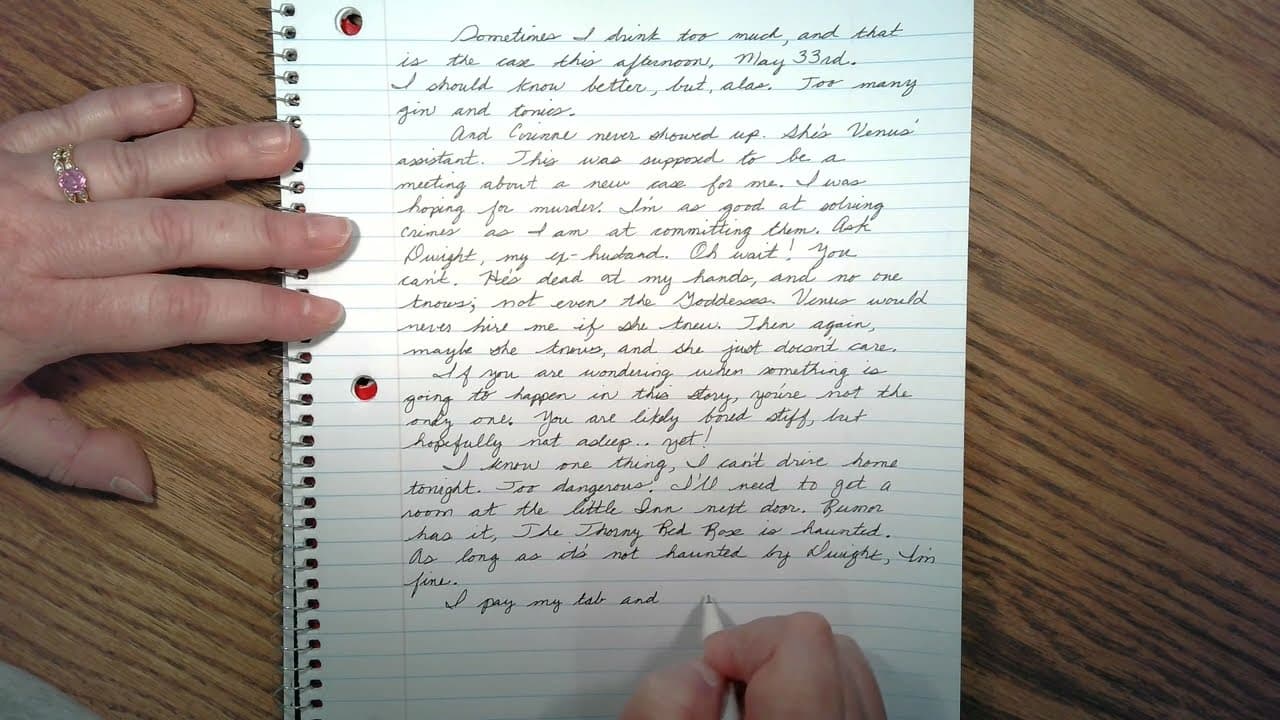 Sometimes I drink too much, and that
is the case this afternoon, May 33rd.
I should know better, but, alas. Too many
gin and tonics.
And Corinne never showed up. She's Venus'
assistant. This was supposed to be a
meeting about a new case for me. I was
hoping for murder. I'm as good at solving
crimes as I am at committing them. Ask
Dwight, my ex-husband. Oh wait! You
can't. He's dead at my hands, and no one
knows; not even the Goddesses. Venus would
never hire me if she knew. Then again,
maybe she knows, and she just doesn't care.
If you are wondering when something is
going to happen in this story, you're not the
only one. You are likely bored stiff, but
hopefully not asleep.. yet!
I know one thing, I can't drive home
tonight. Too dangerous. I'll need to get a
room at the little Inn next door. Rumor
has it, The Thorny Red Rose is haunted.
As long as it's not haunted by Dwight, I'm
fine.
I pay my tab and